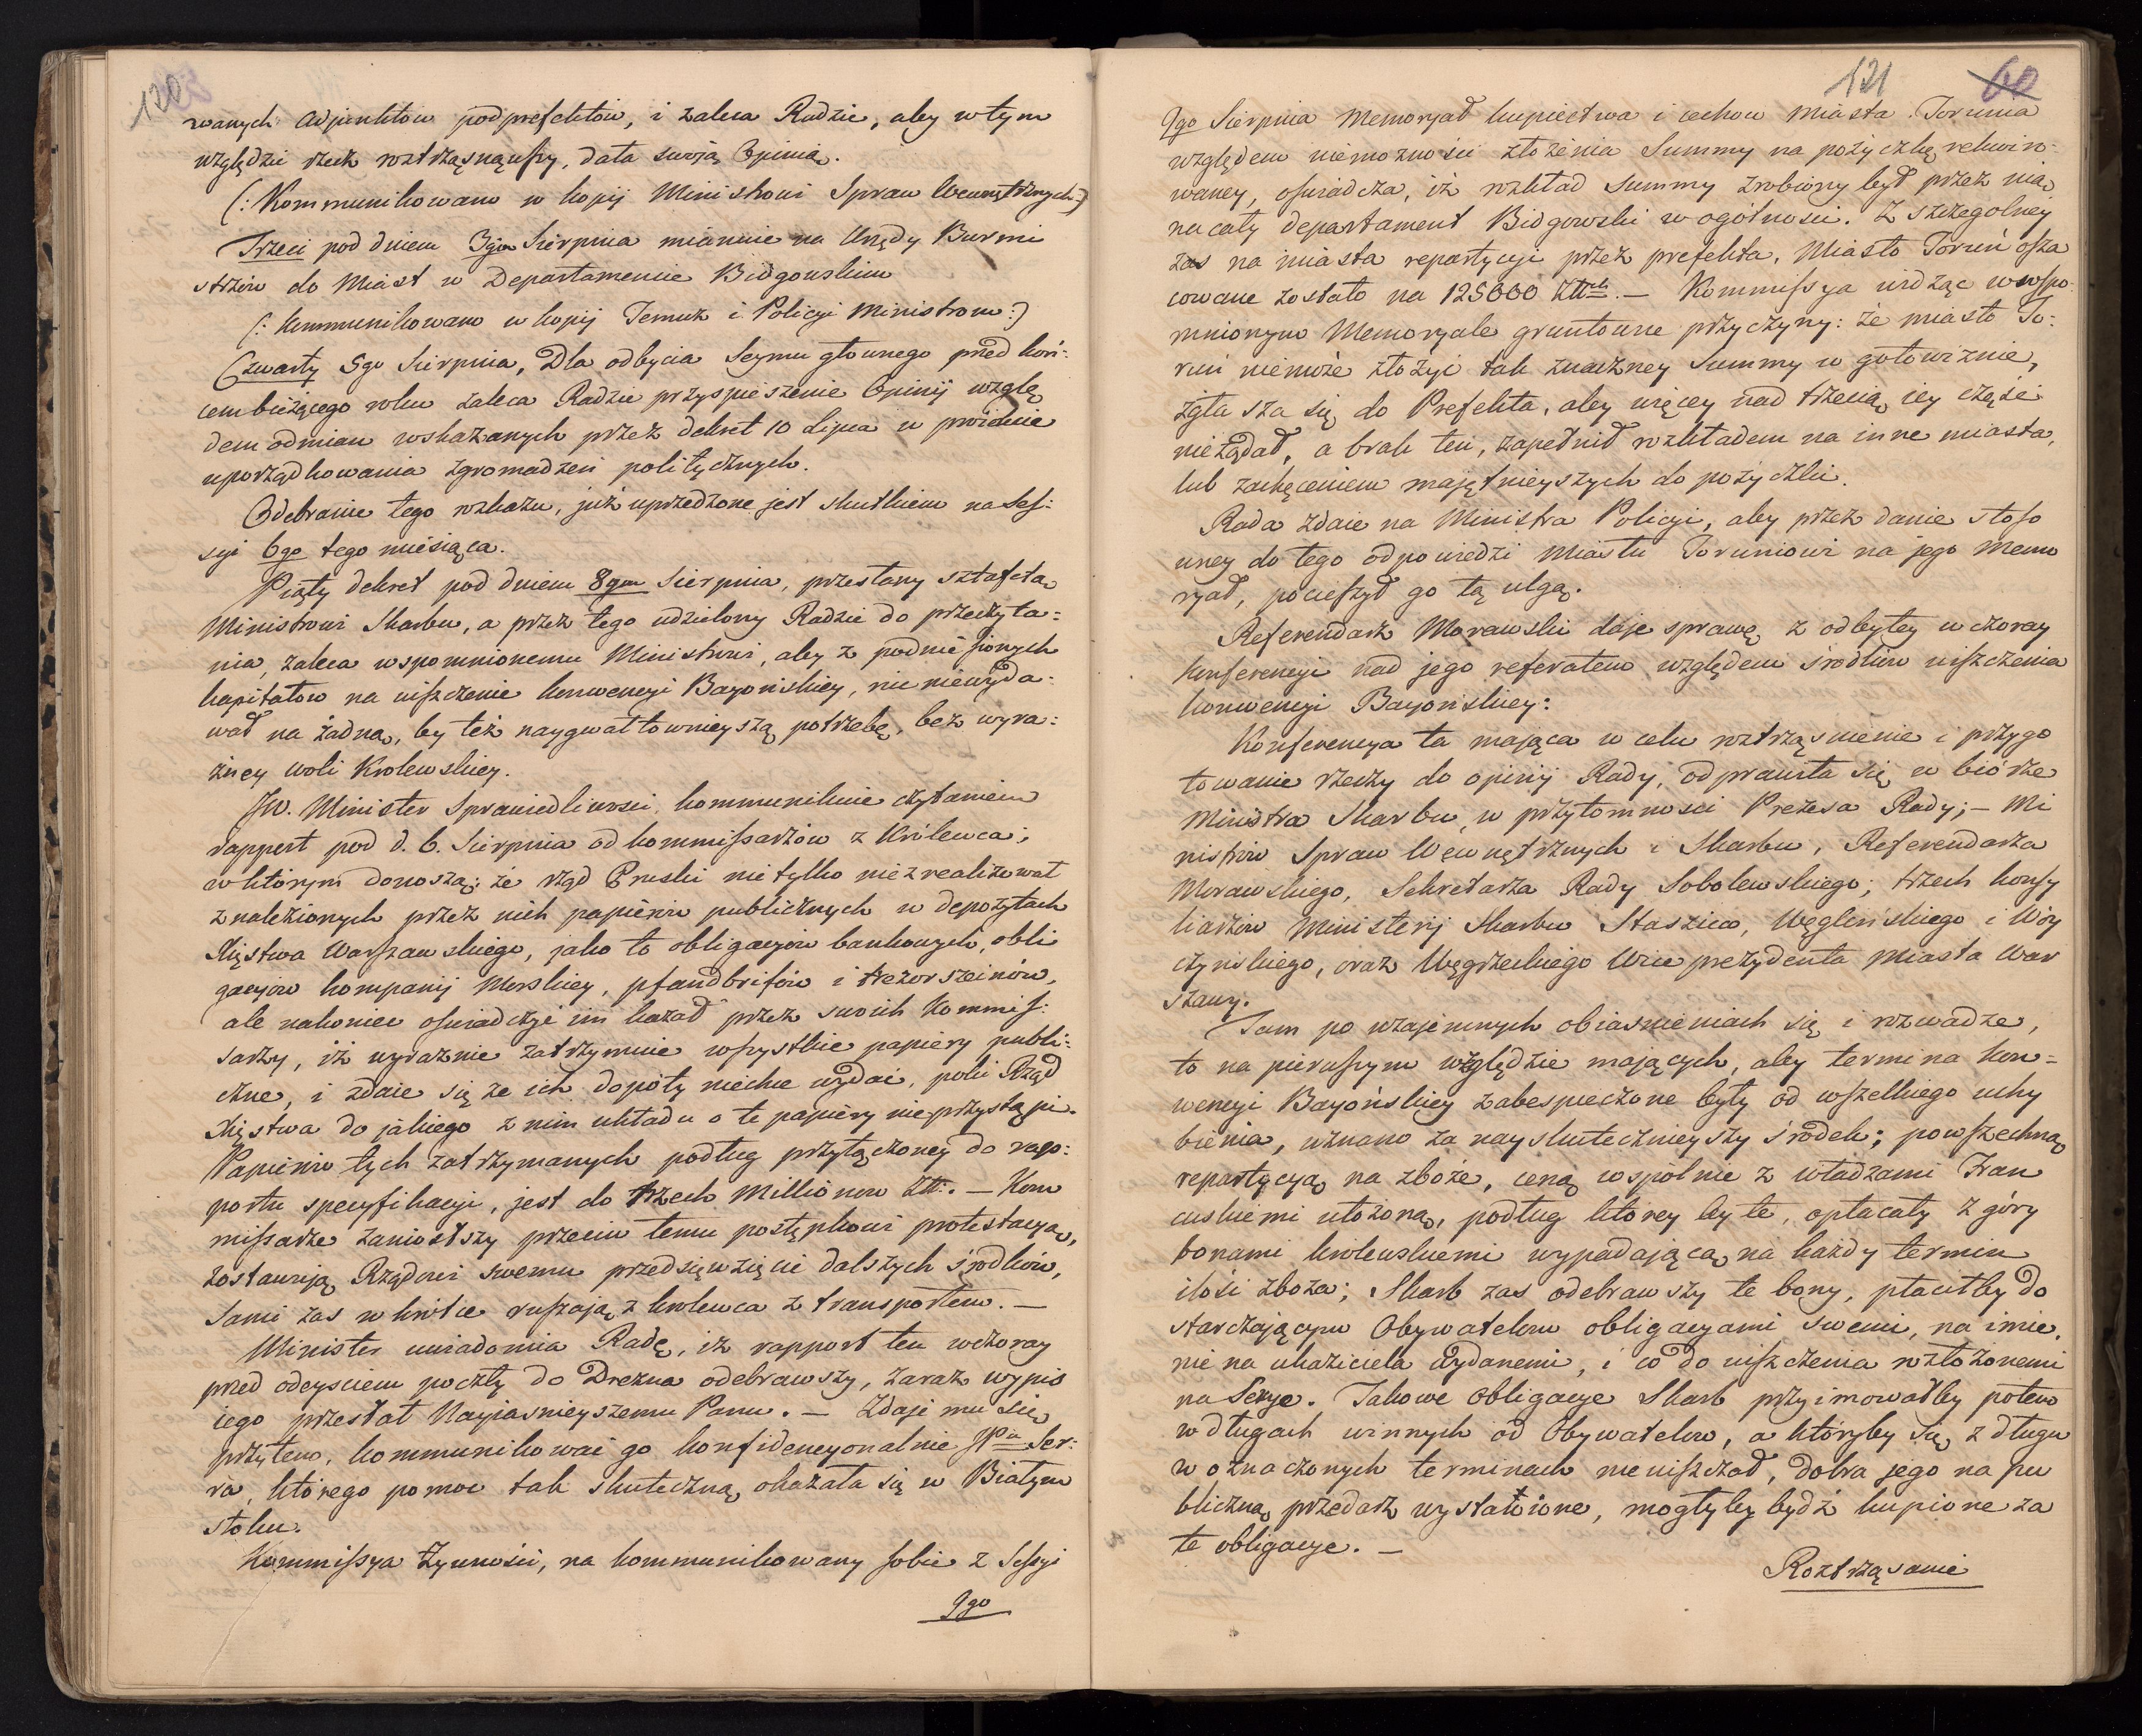 120
wanych Adjunktów podprefektów, i zaleca Radzie, aby wtym
względzie rzecz roztrząsnąwszy, dała swoją Opinią.
(: Kommunikowano w kopij Ministrowi Spraw Wewnętrznych:)
Trzeci pod dniem 3gm Sierpnia mianuie na Urzędy Burmi
strzów do Miast w Departamencie Bidgowskim
(: kommunikowano w kopij Temuż i Policyi Ministrom:)
Czwarty 5go Sierpnia, Dla odbycia Seymu głównego przed koń:
cem bieżącego roku zaleca Radzie przyspieszenie Opinij wzglę
dem odmian wskazanych przez dekret 10 Lipca w proiekcie
uporządkowania zgromadzeń politycznych.
Odebranie tego rozkazu, już uprzedzone jest skutkiem na Ses:
syi 6go tego miesiąca.
Piąty dekret pod dniem 8gm Sierpnia, przesłany sztafetą
Ministrowi Skarbu, a przez tego udzielony Radzie do przeczyta:
nia, zaleca wspomnionemu Ministrowi, aby z podniesionych
kapitałow na uiszczenie konwencyi Bayońskiey, nic niewyda:
wał na żadną, by też naygwałtownieyszą potrzebę, bez wyra:
źney woli Krolewskiey.
JW. Minister Sprawiedliwosci, kommunikuie czytaniem
rapport pod d. 6. Sierpnia od kommissarzów z Królewca;
w którym donoszą; że rząd Pruski nietylko niezrealizował
znalezionych przez nich papiérów publicznych w depozytach
Xięstwa Warszawskiego, jako to obligacyiów bankowych, obli
gacyiow kompanij Morskiey, pfandbrifów i trezorszeinów,
ale nakoniec oświadczyć im kazał przez swoich Kommis:
sarzy, iż wyraznie zatrzymuie wszystkie papiéry publi:
czne, i zdaie się że ich dopóty niechce wydać, poki Rząd
Xięstwa do jakiego z nim układu o te papiéry nieprzystąpi.
Papiérów tych zatrzymanych podług przyłączoney do rapp:
portu specyfikacyi, jest do trzech Millionow Złł:. — Kom
missarze zaniosłszy przeciw temu postępkowi protestacyą,
zostawiją Rządowi swemu przedsięwzięcie dalszych środków,
Sami zas w krótce ruszają z krolewca z transportem. —
Minister uwiadomia Radę, iż rapport ten wczoray
przed odeyściem poczty do Drezna odebrawszy, zaraz wypis
iego przesłał Nayjasnieyszemu Panu. — Zdaje mu się
przytem, kommunikować go konfidencyonalnie JPu Ser:
ra, którego pomoc tak skuteczną okazała się w Białym
stoku.
Kommissya Żywności, na kommunikowany sobie z Sessyi
9go
121 60
9go Sierpnia Memoryał kupiectwa i cechow Miasta Torunia
względem niemożności złożenia Summy na pożyczkę rekwiro:
waney, oświadcza, iż rozkład summy zrobiony był przez nią
na cały departament Bidgowski w ogólnosci. Z szczegolney
zas na miasta repartycyi przez prefekta, Miasto Toruń osza
cowane zostało na 125000 Złłch. — Kommissya widząc wwspo:
mnionym Memoryale gruntowne przyczyny: że miasto To:
ruń niemoże złożyć tak znaczney Summy w gotowiznie,
zgłasza się do Prefekta, aby więcey nad trzecią iey częśc
nieżądał, a brak ten, zapełnił rozkładem na inne miasta,
lub zachęceniem majętnieyszych do pożyczki.
Rada zdaie na Ministra Policyi, aby przez danie stoso
wney do tego odpowiedzi Miastu Toruniowi na jego Memo
ryał, pocieszył go tą ulgą.
Referendarz Morawski daje sprawę z odbytey wczoray
konferencyi nad jego referatem względem srodków uiszczenia
konwencyi Bayońskiey:
Konferencya ta mająca w celu roztrząsnienie i przygo
towanie rzeczy do opinij Rady, odprawiła się w biórze
Ministra Skarbu, w przytomnosci Prezesa Rady; — Mi
nistrów Spraw Wewnętrznych i Skarbu, Referendarza
Morawskiego, Sekretarza Rady Sobolewskiego; trzech konsy
liarzów Ministerij Skarbu Staszica, Węgleńskiego i Woy
czyńskiego, oraz Węgrzeckiego Wice prezydenta Miasta War
szawy.
Tam po wzajemnych obiasnieniach się i rozwadze,
to na pierwszym względzie mających, aby termina kon=
wencyi Bayońskiey zabespieczone były od wszelkiego uchy
bienia, uznano za nayskutecznieyszy środek; powszechną
repartycyą na zboże, ceną wspólnie z władzami Fran
cuskiemi ułożoną, podług ktorey by te, opłacały z góry
bonami krolewskiemi wypadającą na każdy termin
ilość zboża; Skarb zas odebrawszy te bony, płaciłby do
starczającym Obywatelom obligacyami swemi, na imie,
nie na ukaziciela wydanemi, i co do uiszczenia rozłożonemi
na Serye. Takowe Obligacye Skarb przyimowałby potem
w długach winnych od Obywatelow, a któryby się z długu
w oznaczonych terminach nieuiszczał, dobra jego na pu
bliczną przedarz wystawione, mogłyby bydź kupione za
te obligacye. —
Roztrząsanie